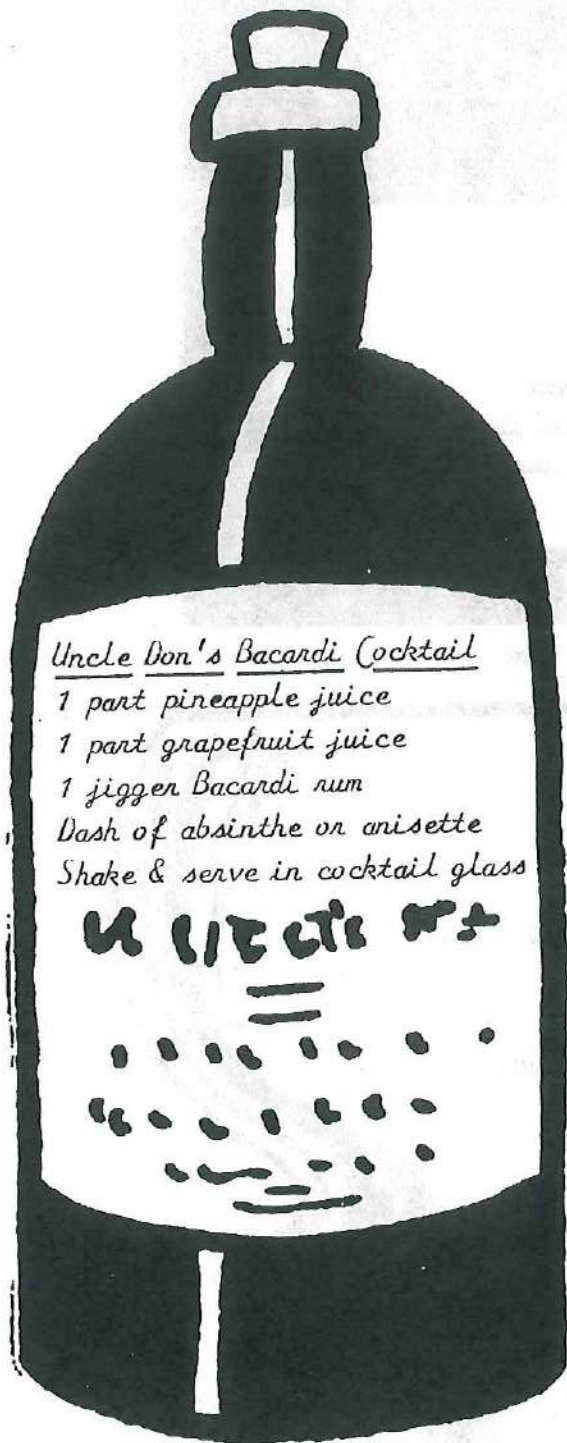 Uncle Don's Bacardi Cocktail
1 part pineapple juice
1 part grapefruit juice
1 jigger Bacardi rum
Dash of absinthe or anisette
Shake & serve in cocktail glass